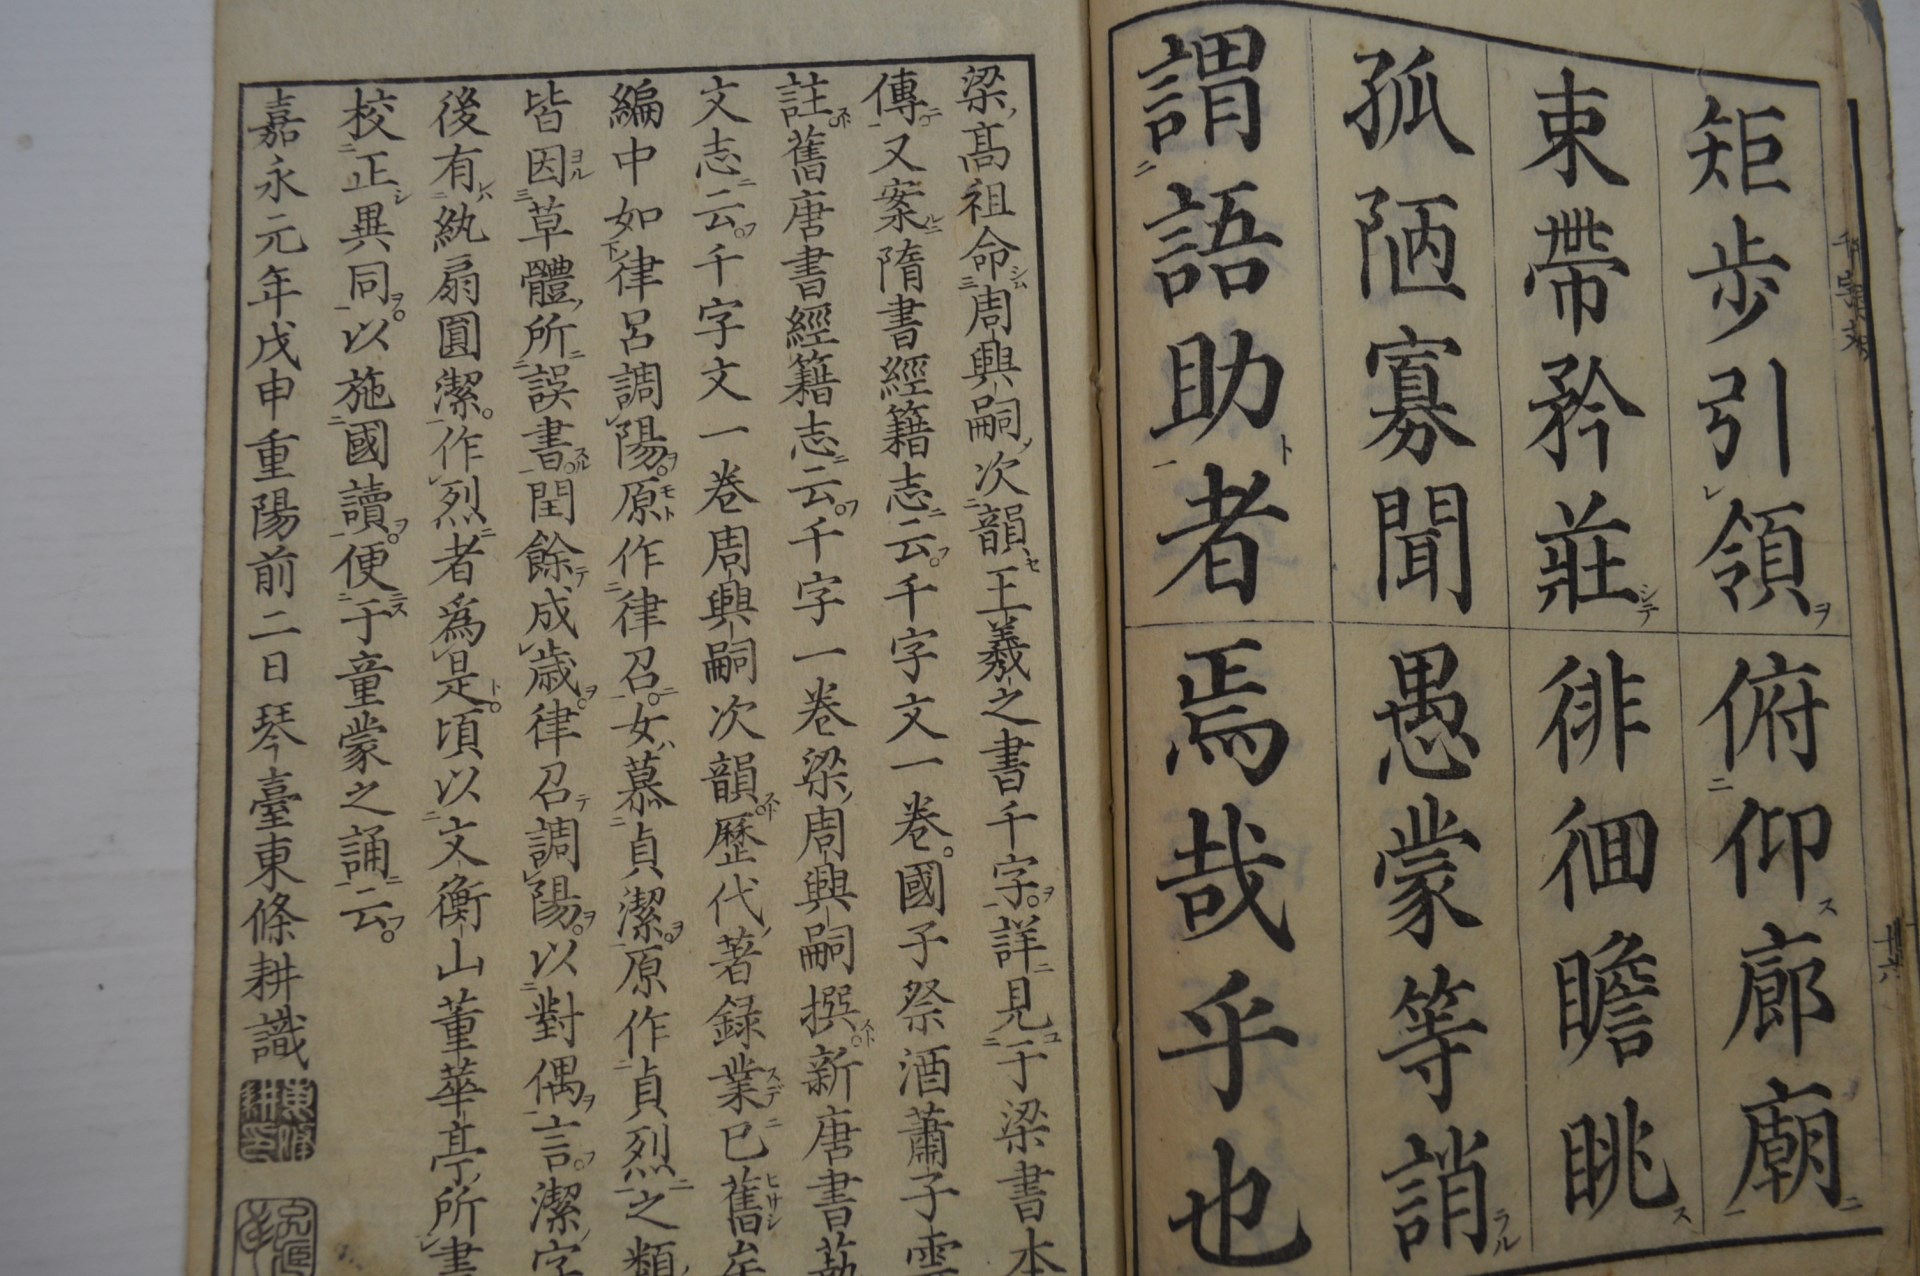 矩歩引領俯仰廊廟
束帶矜莊徘徊瞻眺
孤陋寡聞愚蒙等誚
謂語助者焉哉乎也
梁高祖命周興嗣次韻王羲之書千字詳見于梁書本
傳又案隋書經籍志云千字文一卷國子祭酒蕭子雲
註舊唐書經籍志云千字一卷梁周興嗣撰新唐書藝
文志云千字文一卷周興嗣次韻歷代著録業已舊矣
編中如律呂調陽原作律召女慕貞潔原作貞烈之類
皆因草體所誤書閏餘成歳律召調陽以對偶言潔字
後有紈扇圓潔作烈者為是頃以文衡山董華亭所書
校正異同以施國讀便于童蒙之誦云
嘉永元年戊申重陽前二日琴臺東條耕識